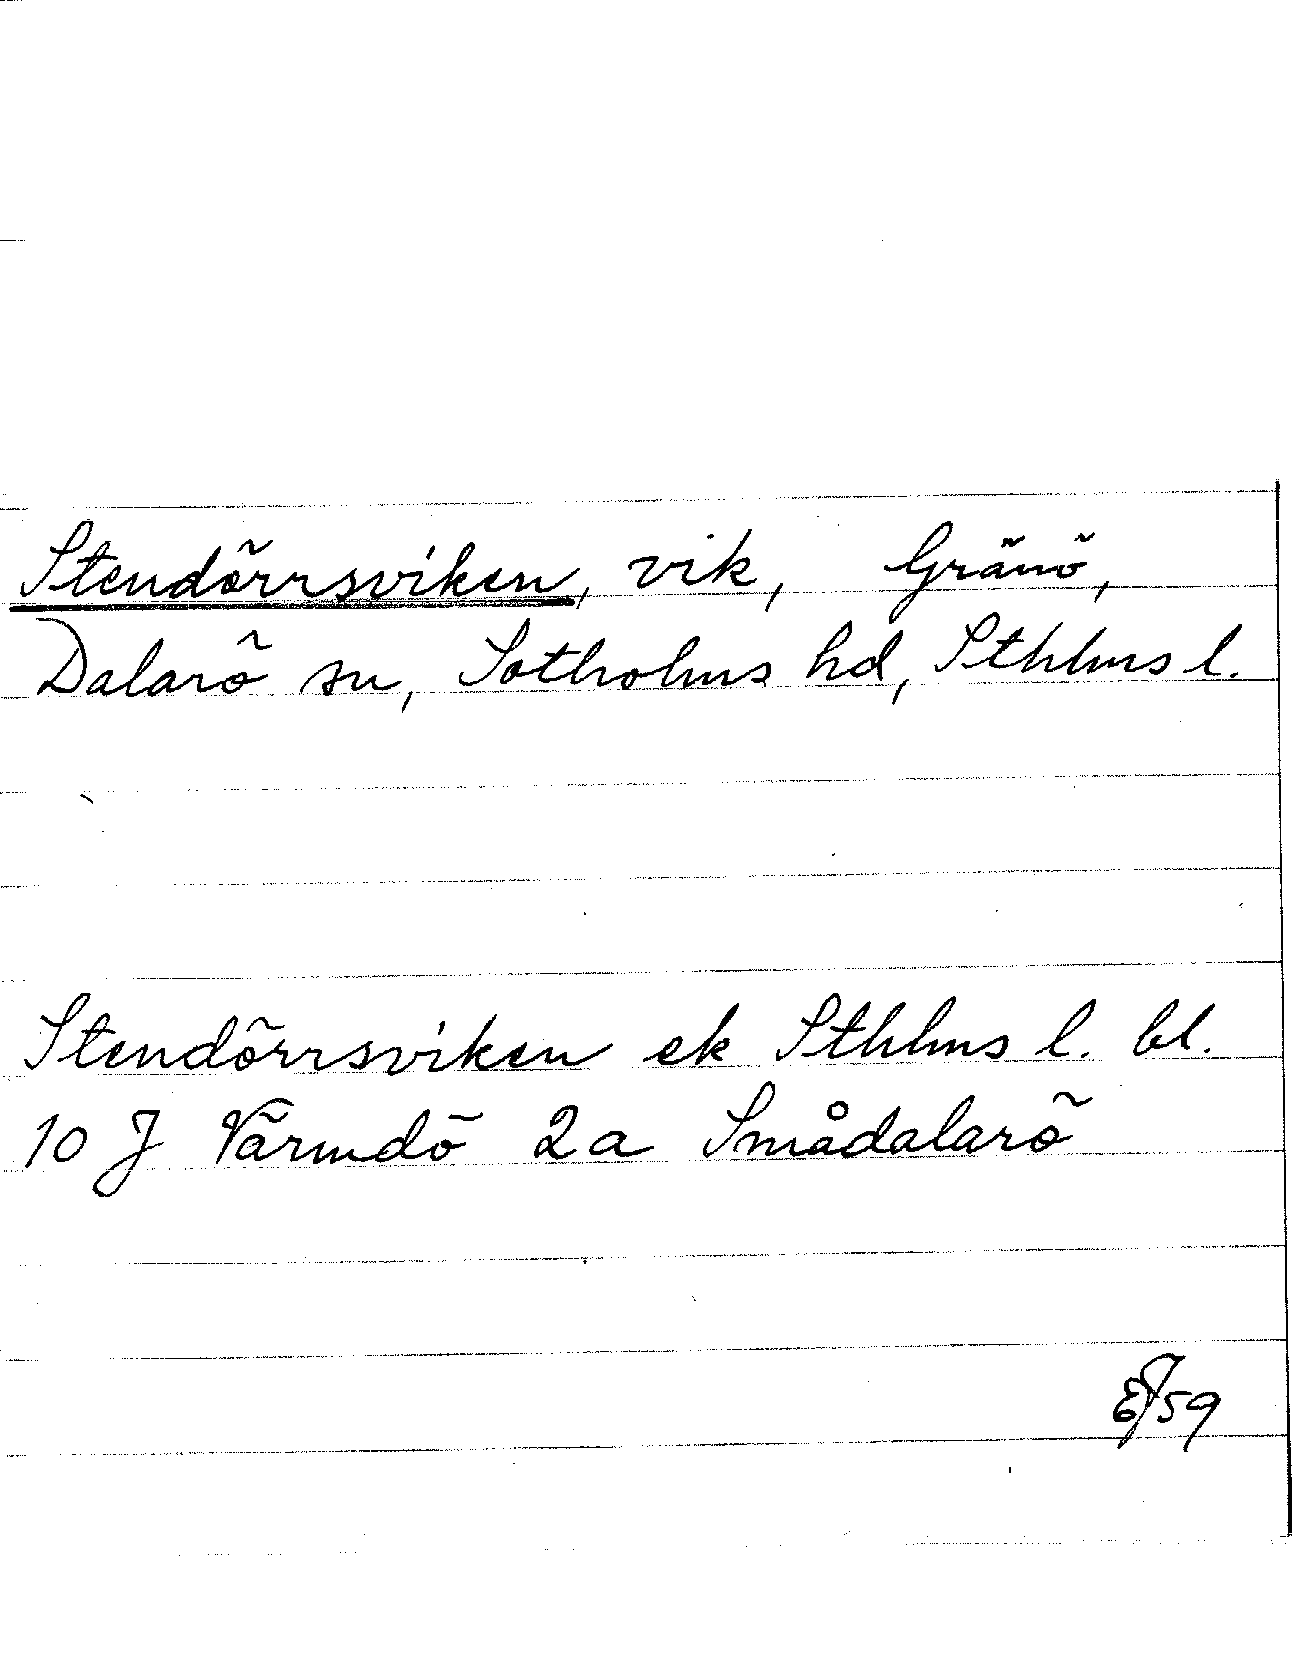 Stendörrsviken, vik, Gränö,
Dalarö sn, Sotholms hd, Sthlms l.
Stendörrsviken ek Sthlms l. bl.
10 J Värmdö 2a Smådalarö
59